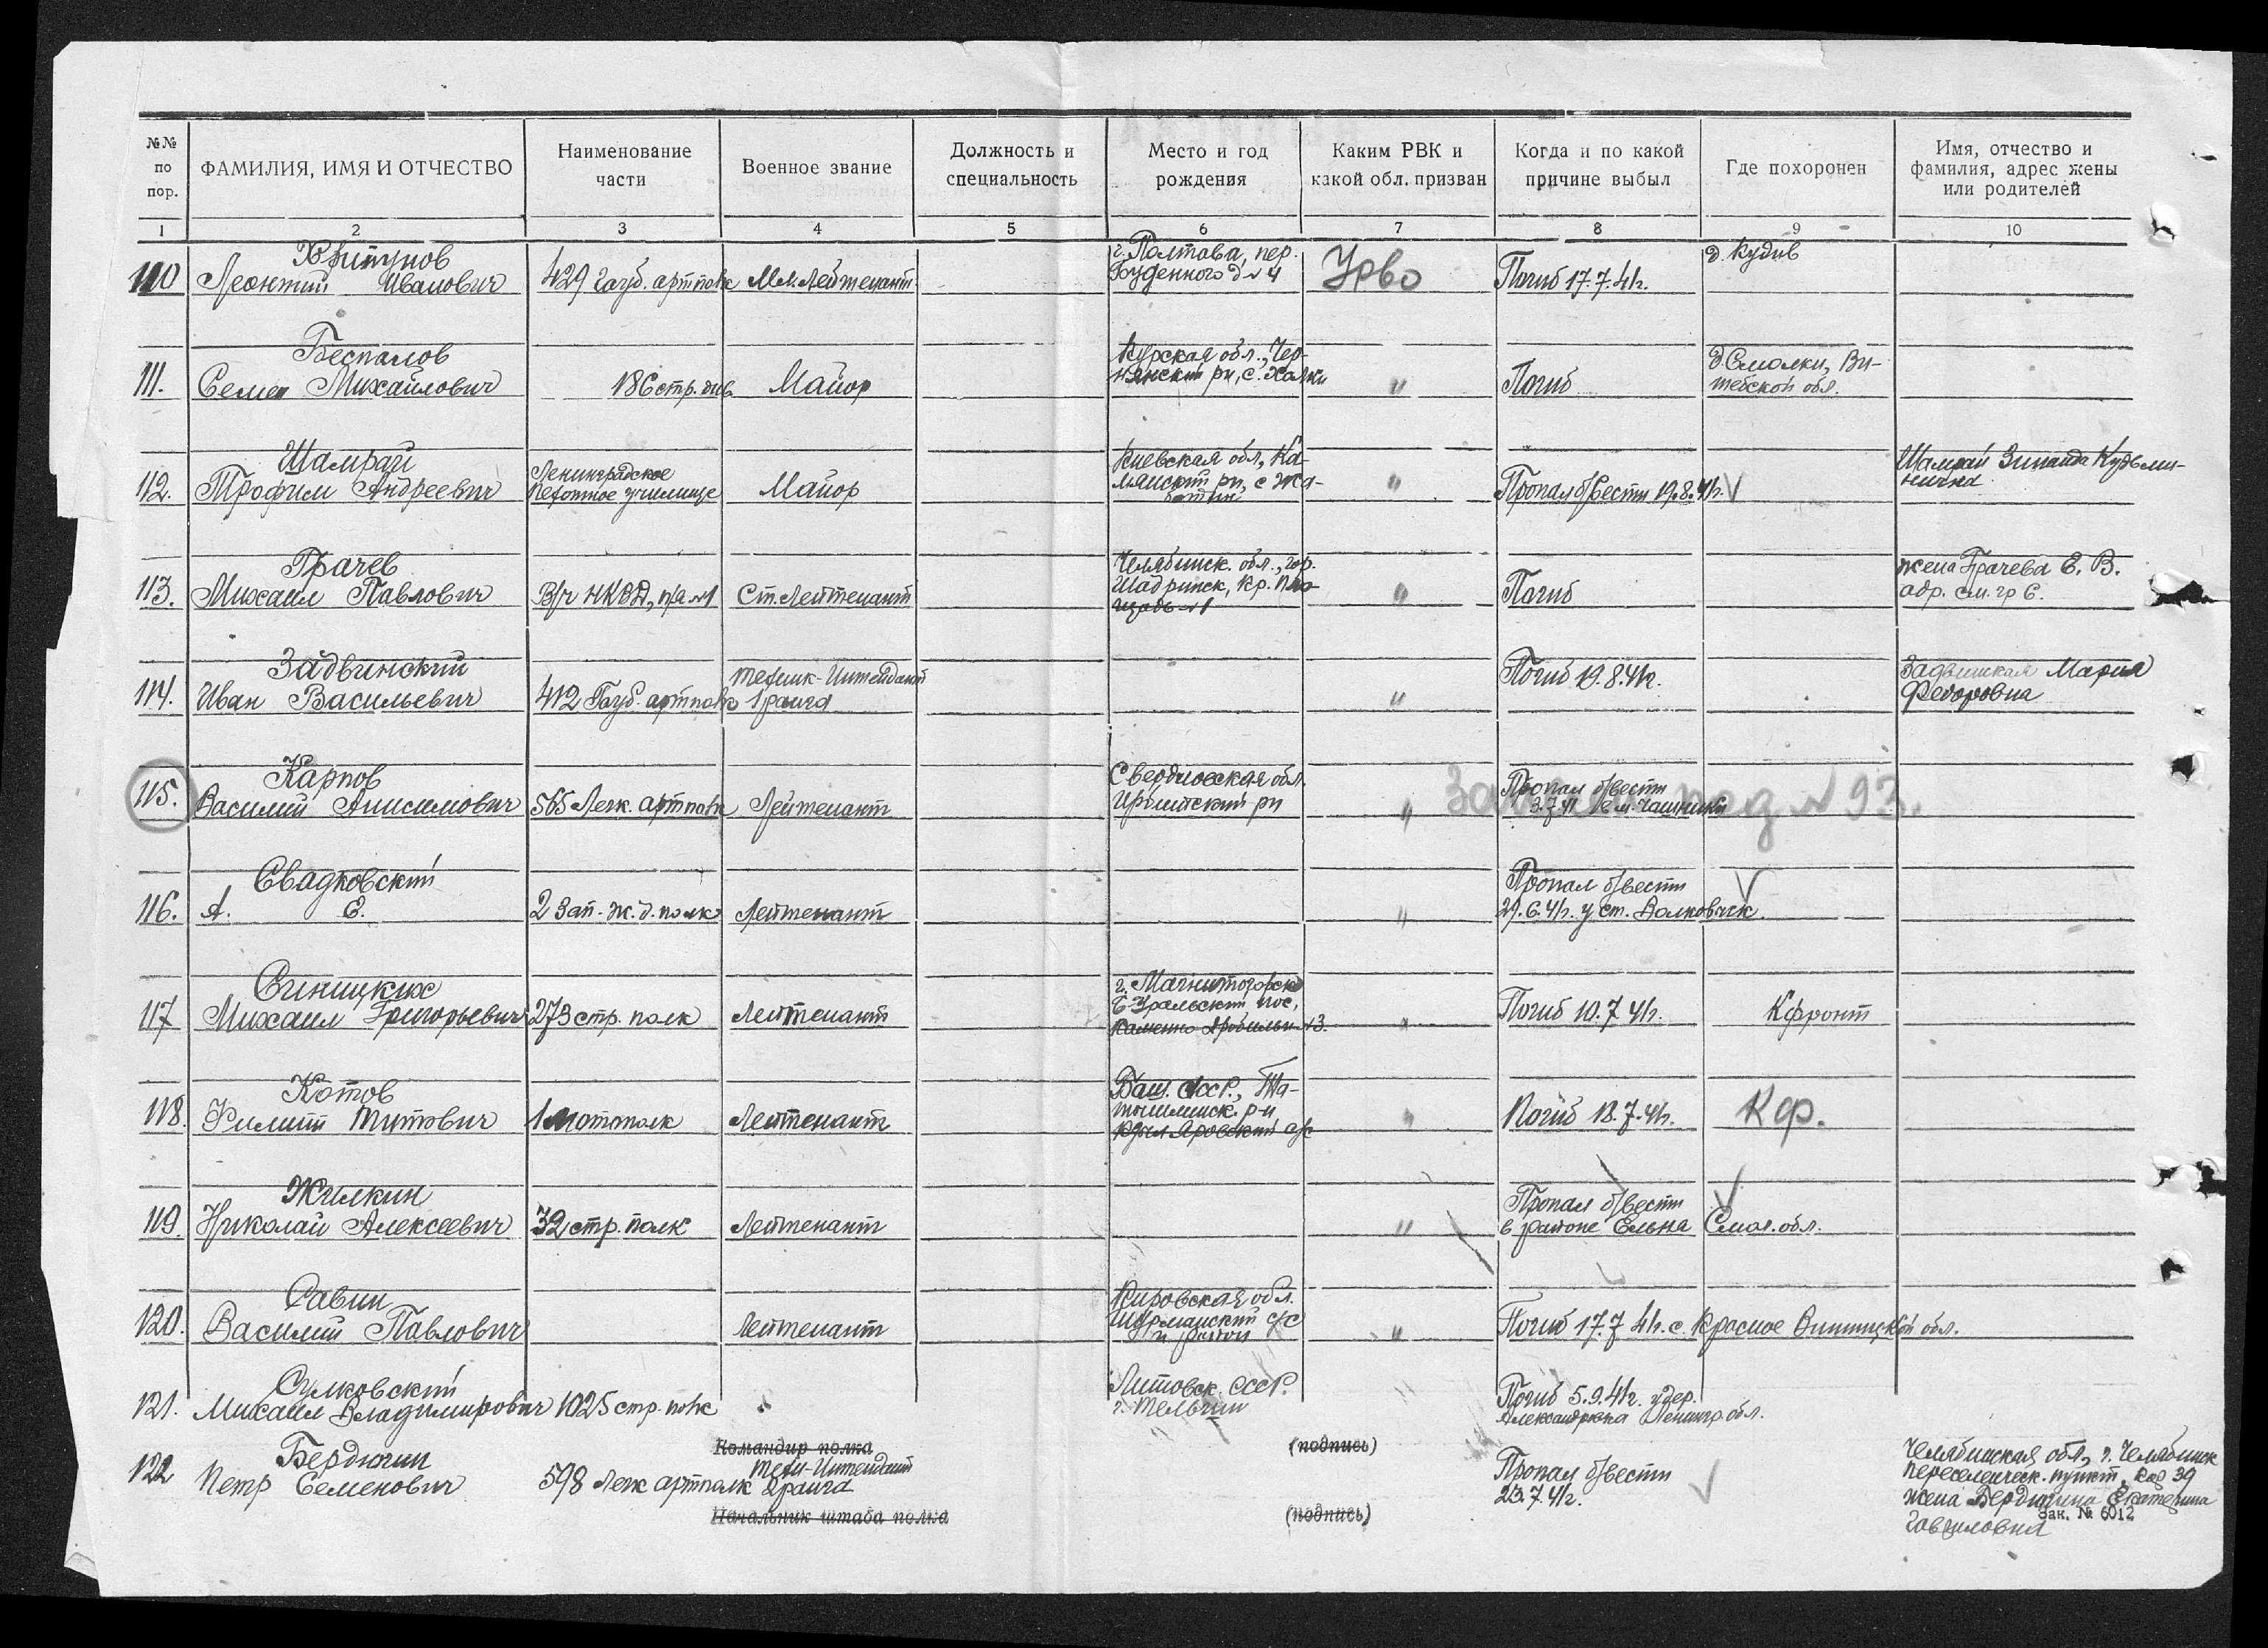 №№ по пор.
ФАМИЛИЯ, ИМЯ И ОТЧЕСТВО
Наименование части
Военное звание
Должность и специальность
Место и год рождения
Каким РВК и какой обл. призван
Когда и по какой причине выбыл
Где похоронен
Имя, отчество и фамилия, адрес жены или родителей
1 2 3 4 5 6 7 8 9 10
110
Леонтий Иванович
429 гауб. артполк
Мл. Лейтенант
г. Полтава, пер.
Буденного д № 4
Урво
Погиб 17.7.41г.
111.
Беспалов
Семен Михайлович
186 стр. див.
Майор
Курская обл., Чер-
нянский рн, с.
"
Погиб
Витебской обл.
112.
Шамрай
Трофим Андреевич
Ленинградское
пехотное училище
Майор
Киевская обл, Ка-
"
Пропал б/вести 19.8.41г.
Шамрай Зинаида Кузьми-
нична
113.
Грачев
Михаил Павлович
В/ч НКВД, п/я №1
Ст. Лейтенант
Челябинск. обл., гор.
Шадринск, Кр. пло-
щадь №1
"
Погиб
жена Грачева Е. В.
адр. см. гр 6.
114.
Задвинский
Иван Васильевич
412 Гауб. артполк
Техник-Интендант
1 ранга
"
Погиб 19.8.41г.
Задвинская Мария
Федоровна
115.
Карпов
Василий Анисимович
565 Легк. артполк
Лейтенант
Свердловская обл.
Ирбитский рн
"
Пропал б/вести
3.7.41 Чашники
№ 93.
116.
Свадковский
А. Е.
2 Зап. ж.д. полк
Лейтенант
"
Пропал б/вести
29.6.41г. у ст. Волковыск
117
Синицких
Михаил Григорьевич
273 стр. полк
Лейтенант
г. Магнитогорск
Б-Уральский пос,
13.
"
Погиб 10.7.41г.
К фронт
118.
Котов
Филипп Титович
1 Мотополк
Лейтенант
Баш. АССР.,
"
Погиб 18.7.41г.
К ф.
119.
Жилкин
Николай Алексеевич
32 стр. полк
Лейтенант
"
Пропал б/вести
в районе Ельна Смол. обл.
120.
Савин
Василий Павлович
Лейтенант
Кировская обл.
Шурманский с/с
и район
"
Погиб 17.7.41г. с. Красное Винницкой обл.
121.
Сулковский
Михаил Владимирович
1025 стр. полк
Литовск. ССР.
г. Тельшай
Погиб 5.9.41г. у дер.
Александровка Ленингр. обл.
Командир полка (подпись)
122
Бердюгин
Петр Семенович
598 Легк артполк
Техн-Интендант
2 ранга
Пропал б/вести
23.7.41г.
Челябинская обл, г. Челябинск
переселенческ. пункт, 39
жена Бердюгина Екатерина
Гавриловна
Начальник штаба полка (подпись)
Зак. № 6012